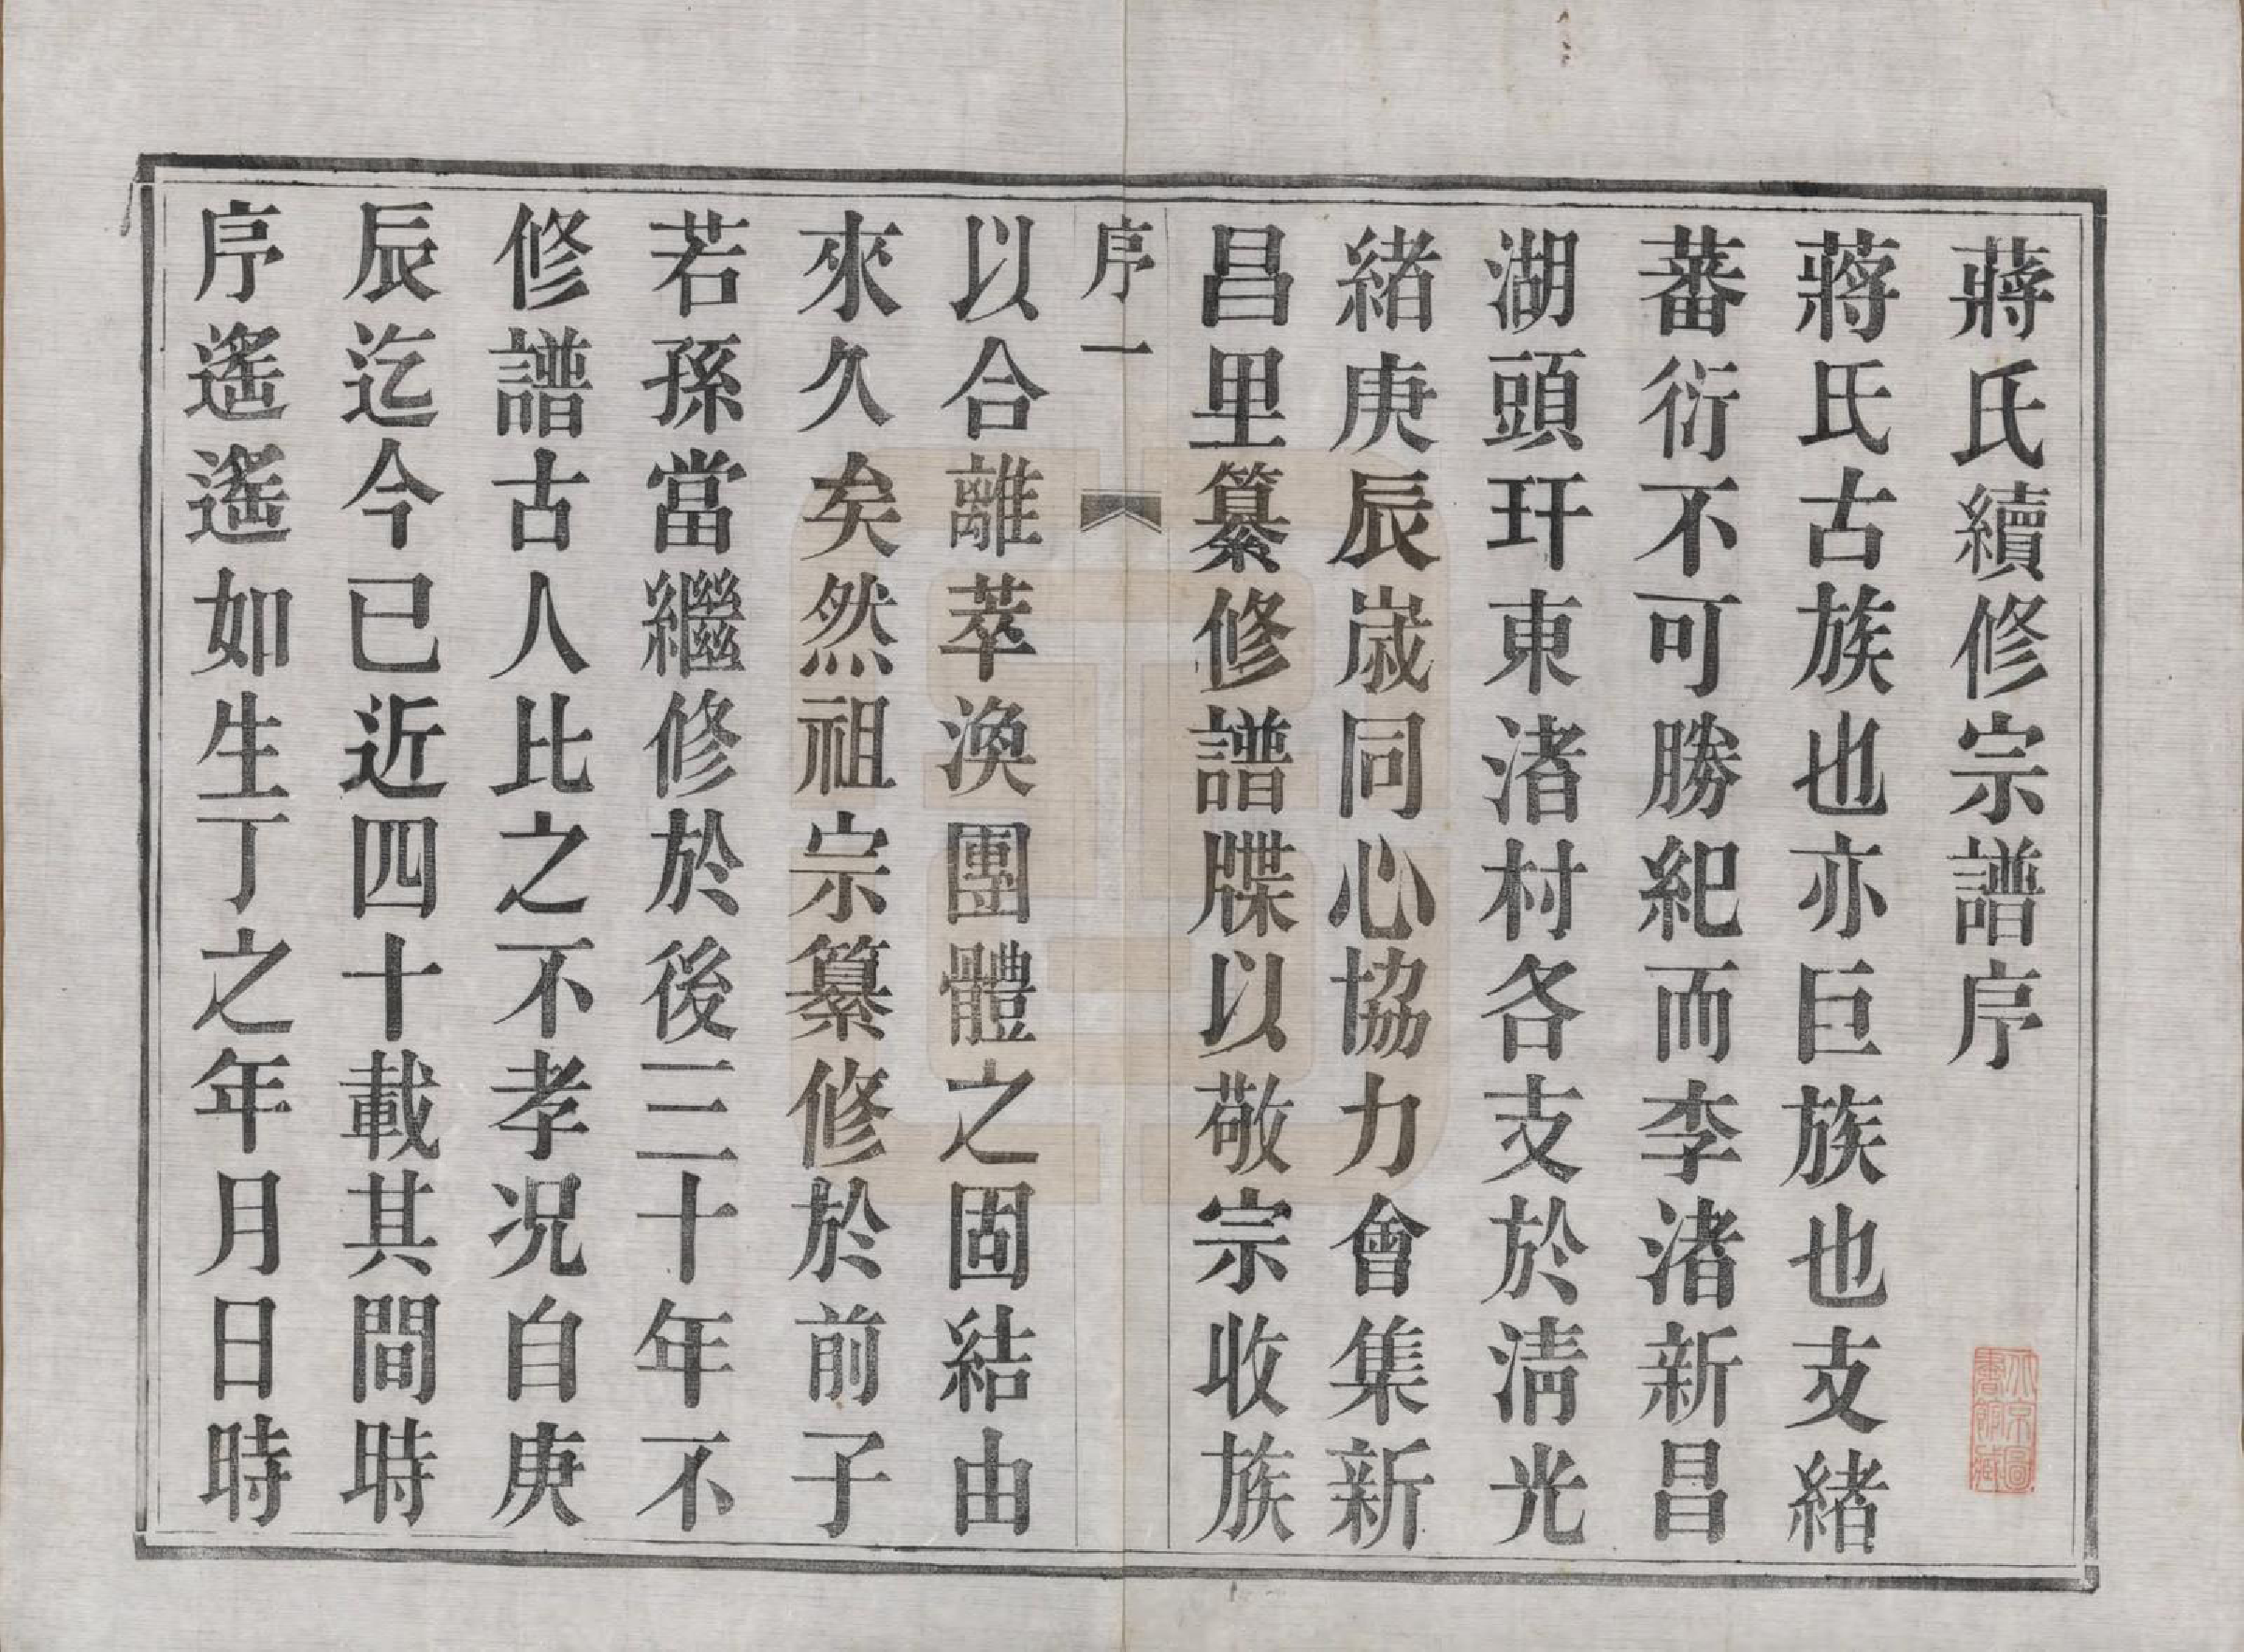 蔣氏續修宗譜序
蔣氏古族也亦巨族也支緒
蕃衍不可勝紀而李渚新昌
湖頭玕東渚村各支於淸光
緒庚辰歲同心協力會集新
昌里纂修譜牒以敬宗收族
序一
以合離萃渙團體之固結由
來久矣然祖宗纂修於前子
若孫當繼修於後三十年不
修譜古人比之不孝况自庚
辰迄今已近四十載其間時
序遙遙如生丁之年月日時